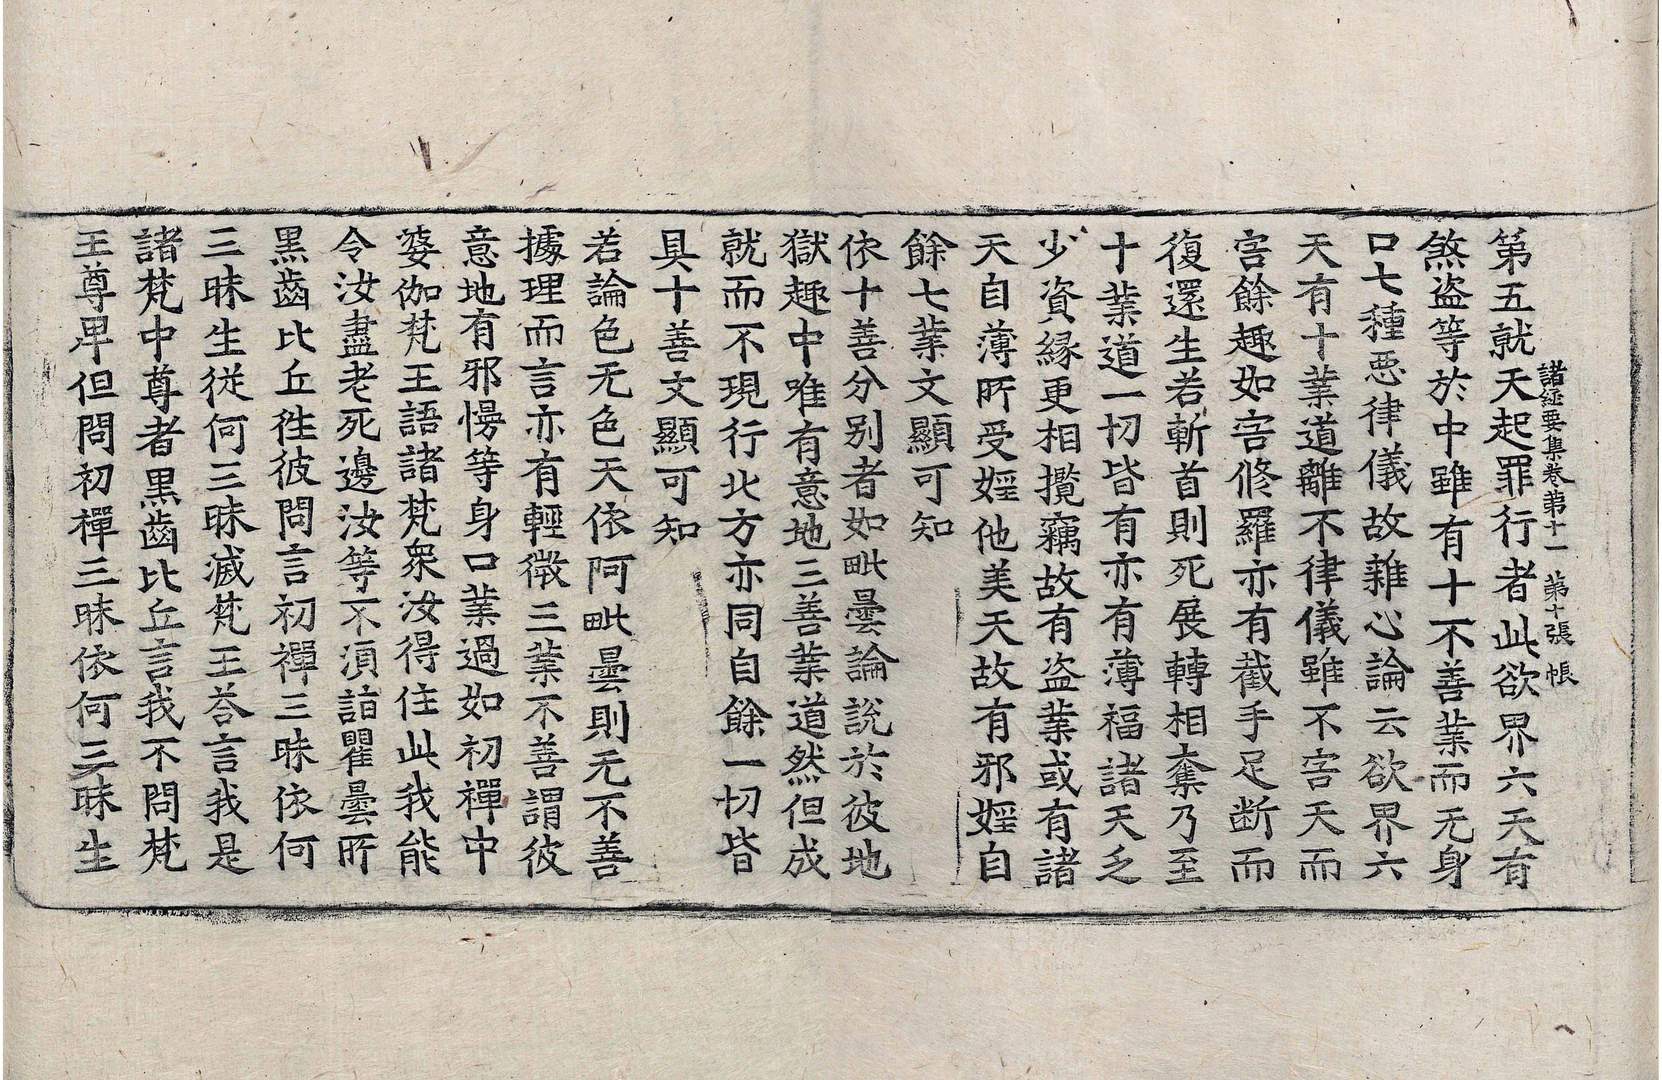 諸経要集巻第十一 第十張 帳
第五就天起罪行者此欲界六天有
煞盜等於中雖有十不善業而无身
口七種惡律儀故雜心論云欲界六
天有十業道離不律儀雖不害天而
害餘趣如害修羅亦有截手足断而
復還生若斬首則死展轉相奪乃至
十業道一切皆有亦有薄福諸天乏
少資緣更相攬竊故有盜業或有諸
天自薄所受婬他美天故有邪婬自
餘七業文顯可知
依十善分别者如毗曇論說於彼地
獄趣中唯有意地三善業道然但成
就而不現行北方亦同自餘一切皆
具十善文顯可知
若論色无色天依阿毗曇則无不善
據理而言亦有輕微三業不善謂彼
意地有邪慢等身口業過如初禪中
婆伽梵王語諸梵衆汝得住此我能
令汝盡老死邊汝等不湏詣瞿曇所
黑齒比丘徃彼問言初禪三昧依何
三昧生從何三昧滅梵王荅言我是
諸梵中尊者黑齒比丘言我不問梵
王尊卑但問初禪三昧依何三昧生